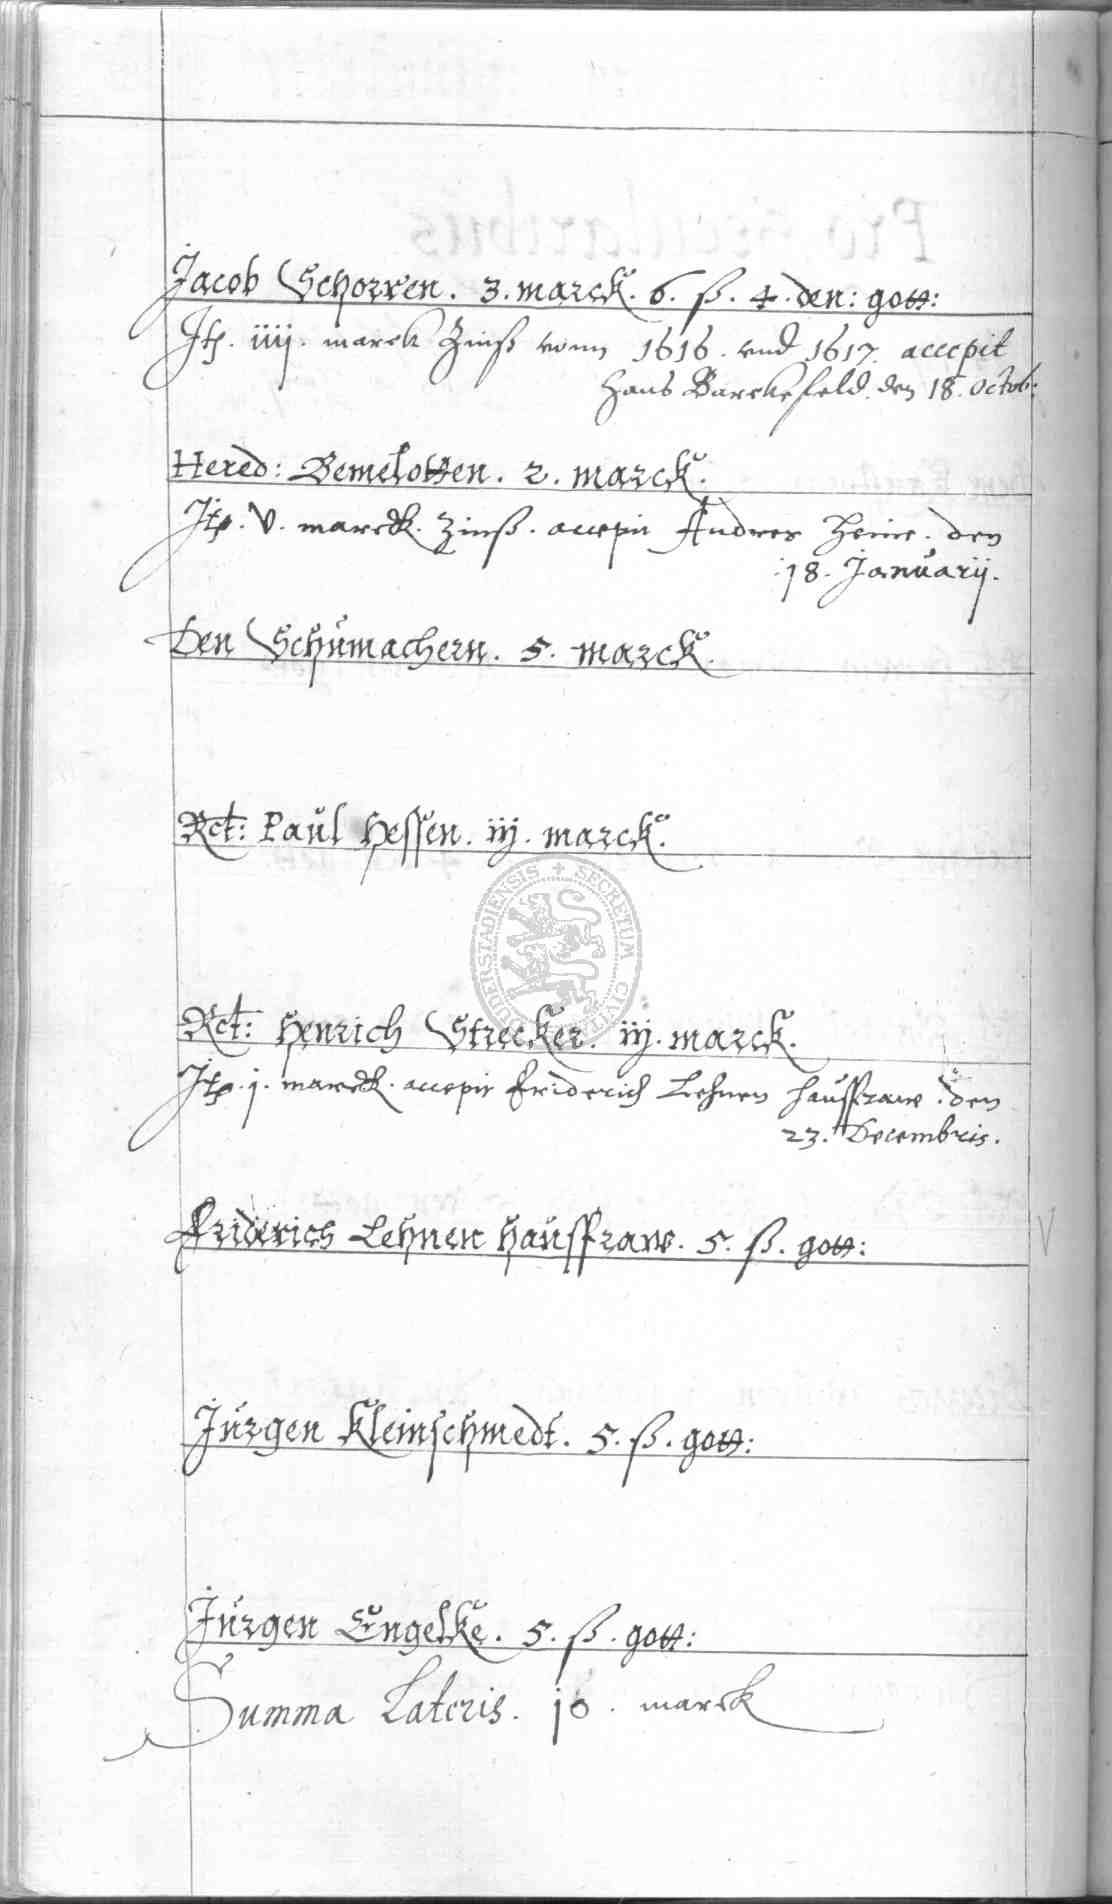 Jacob Schorren. 3. marck. 6. ß. 4. den: gott:
Jtp. iiij. marck Zinß vonn 1616. vnd 1617. accepit
Hans Barckefeld. den 18. Octob:
Hered: Bemelotten. 2. marck.
Jtp. V. marck. Zinß. accepit Andres Heine. den
18. Januarij.
Den Schumachern. 5. marck.
Rct: Paul Hessen. iij. marck.
DUDERSTADIENSIS + SECRETUM CIVITATIS
Rct: Henrich Strecker. iij. marck.
Jtp. j. marck. accepit Friderich Lehnen haussfraw. den
23. Decembris.
Friderich Lehnen Haussfraw. 5. ß. gott:
Jurgen Kleinschmedt. 5. ß. gott:
Jurgen Engelke. 5. ß. gott:
Summa Lateris. 10. marck